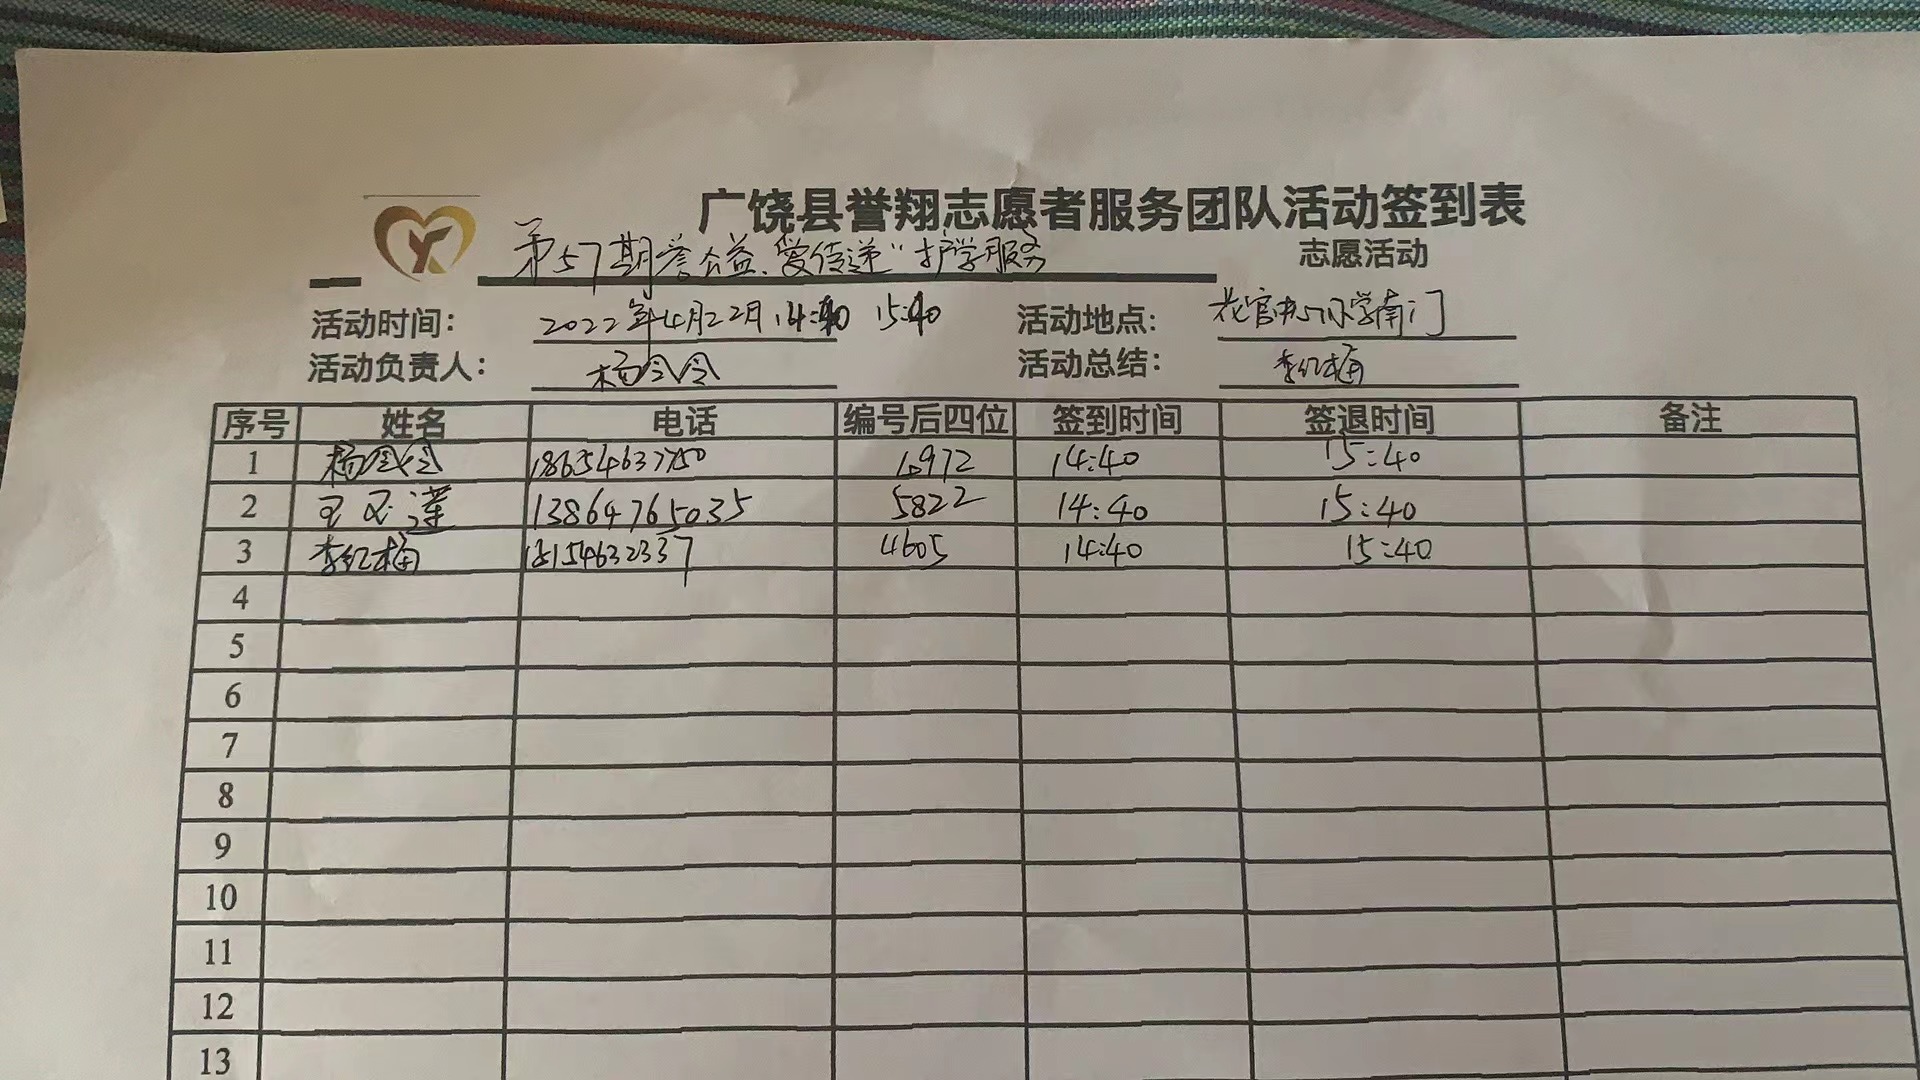 广饶县誉翔志愿者服务团队活动签到表
第57期誉公益、爱传递"护学服务 志愿活动
活动时间： 2022年4月22日 14:40 15:40 活动地点： 花官中心小学南门
活动负责人： 杨会会 活动总结： 李红梅
序号 姓名 电话 编号后四位 签到时间 签退时间 备注
1 杨会会 18654637750 4972 14:40 15:40
2 王玉莲 13864765035 5822 14:40 15:40
3 李红梅 18154632337 4605 14:40 15:40
4
5
6
7
8
9
10
11
12
13